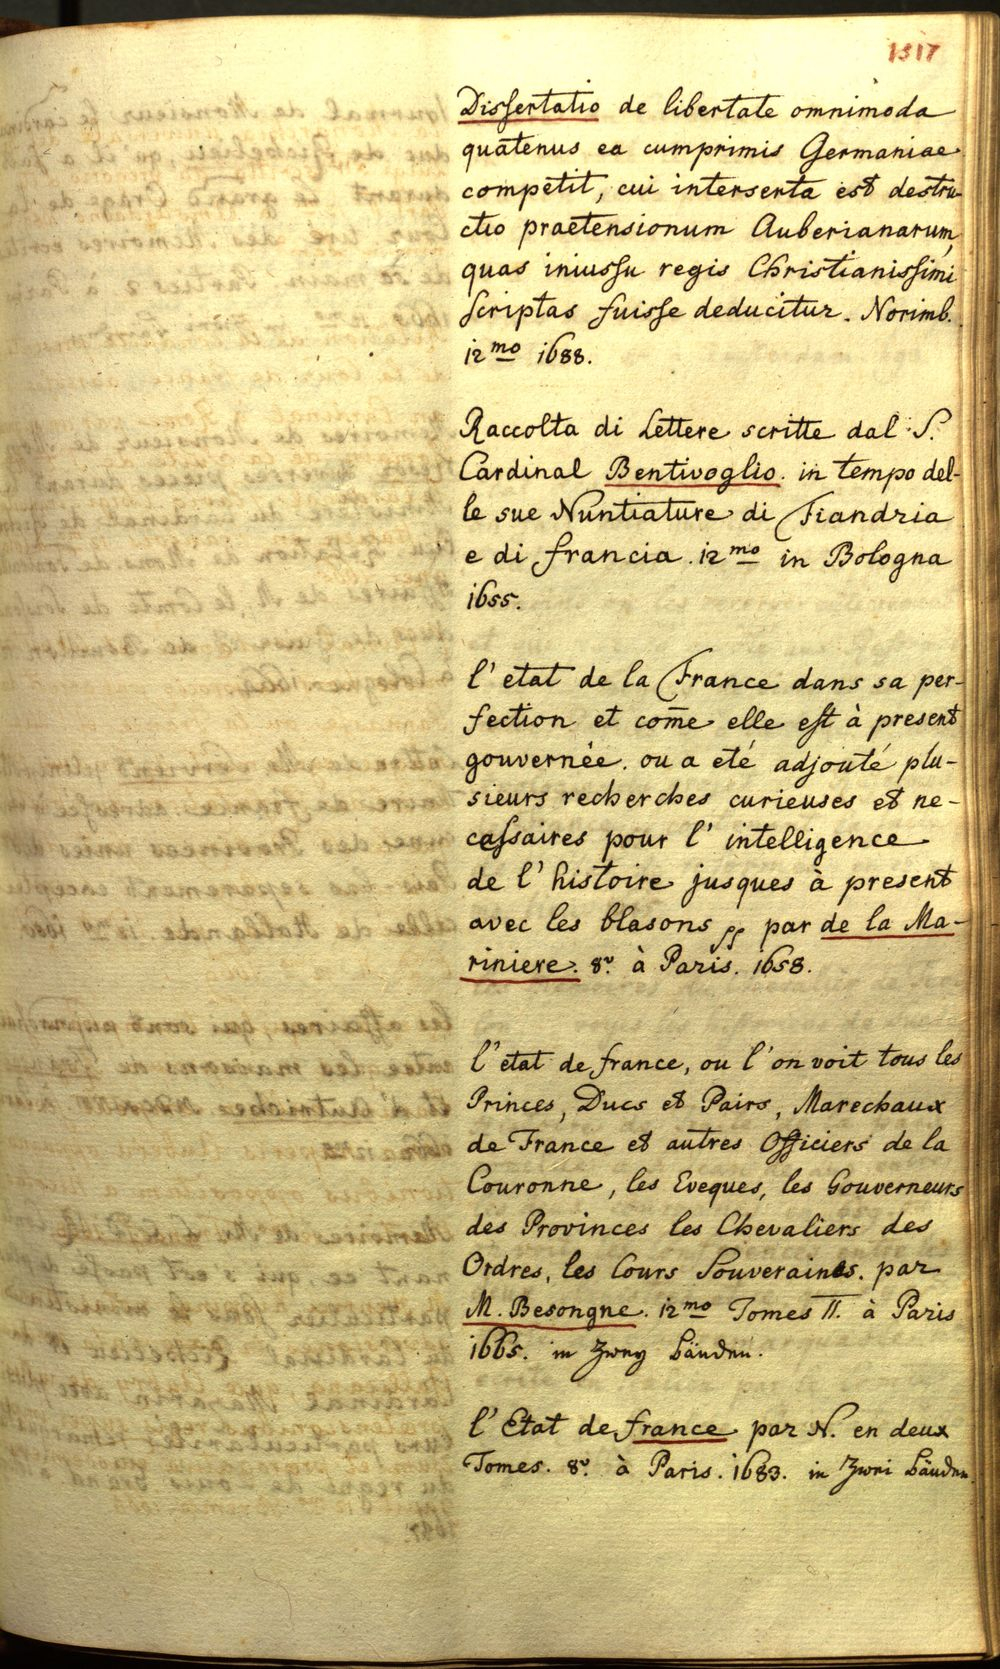 1317
Dissertatio de libertate omnimoda
quatenus ea cumprimis Germaniae
competit, cui interserta est destru-
ctio praetensionum Auberianarum,
quas iniussu regis Christianissimi
scriptas fuisse deducitur. Norimb.
12mo 1688.
Raccolta di Lettere scritte dal S.
Cardinal Bentivoglio. in tempo del-
le sue Nuntiature di Fiandria
e di francia. 12mo in Bologna
1655.
l' etat de la France dans sa per-
fection et com̄e elle est à present
gouvernée. ou a eté adjouté plu-
sieurs recherches curieuses et ne-
cassaires pour l' intelligence
de l' histoire jusques à present
avec les blasons pp par de la Ma-
riniere. 8v. à Paris. 1658.
l' etat de france, ou l' on voit tous les
Princes, Ducs et Pairs, Marechaux
de France et autres Officiers de la
Couronne, les Eveques, les Gouverneurs
des Provinces les Chevaliers des
Ordres, les Cours Souveraines. par
M. Besongne. 12mo Tomes II. à Paris
1665. in Zwey bänden.
l' Etat de france par N. en deux
Tomes. 8v. à Paris. 1683. in Zwei bänden